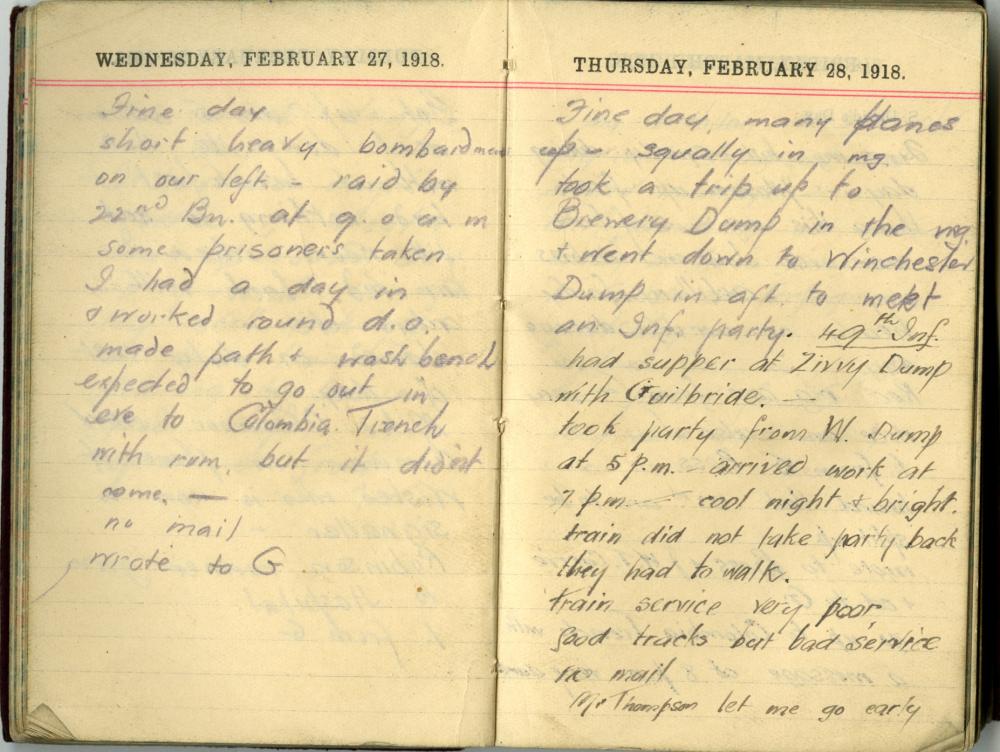 WEDNESDAY, FEBRUARY 27, 1918.
Fine day
short heavy bombardment
on our left - raid by
22nd Bn. at 9.0 a m
some prisoners taken
I had a day in
& worked round d.o.
made path & wash bench
expected to go out in
eve to Colombia Trench
with rum, but it didn't
come. —
no mail
wrote to G
THURSDAY, FEBRUARY 28, 1918.
Fine day, many planes
up - squally in mg
took a trip up to
Brewery Dump in the mg.
& went down to Winchester
Dump in aft to meet
an Inf. party. 49th Inf.
had supper at Zivvy Dump
with Guilbride. —
took party from W. Dump
at 5 p.m. arrived work at
7 p.m. — cool night & bright.
train did not take party back
they had to walk.
train service very poor
good tracks but bad service
no mail
Mr Thompson let me go early